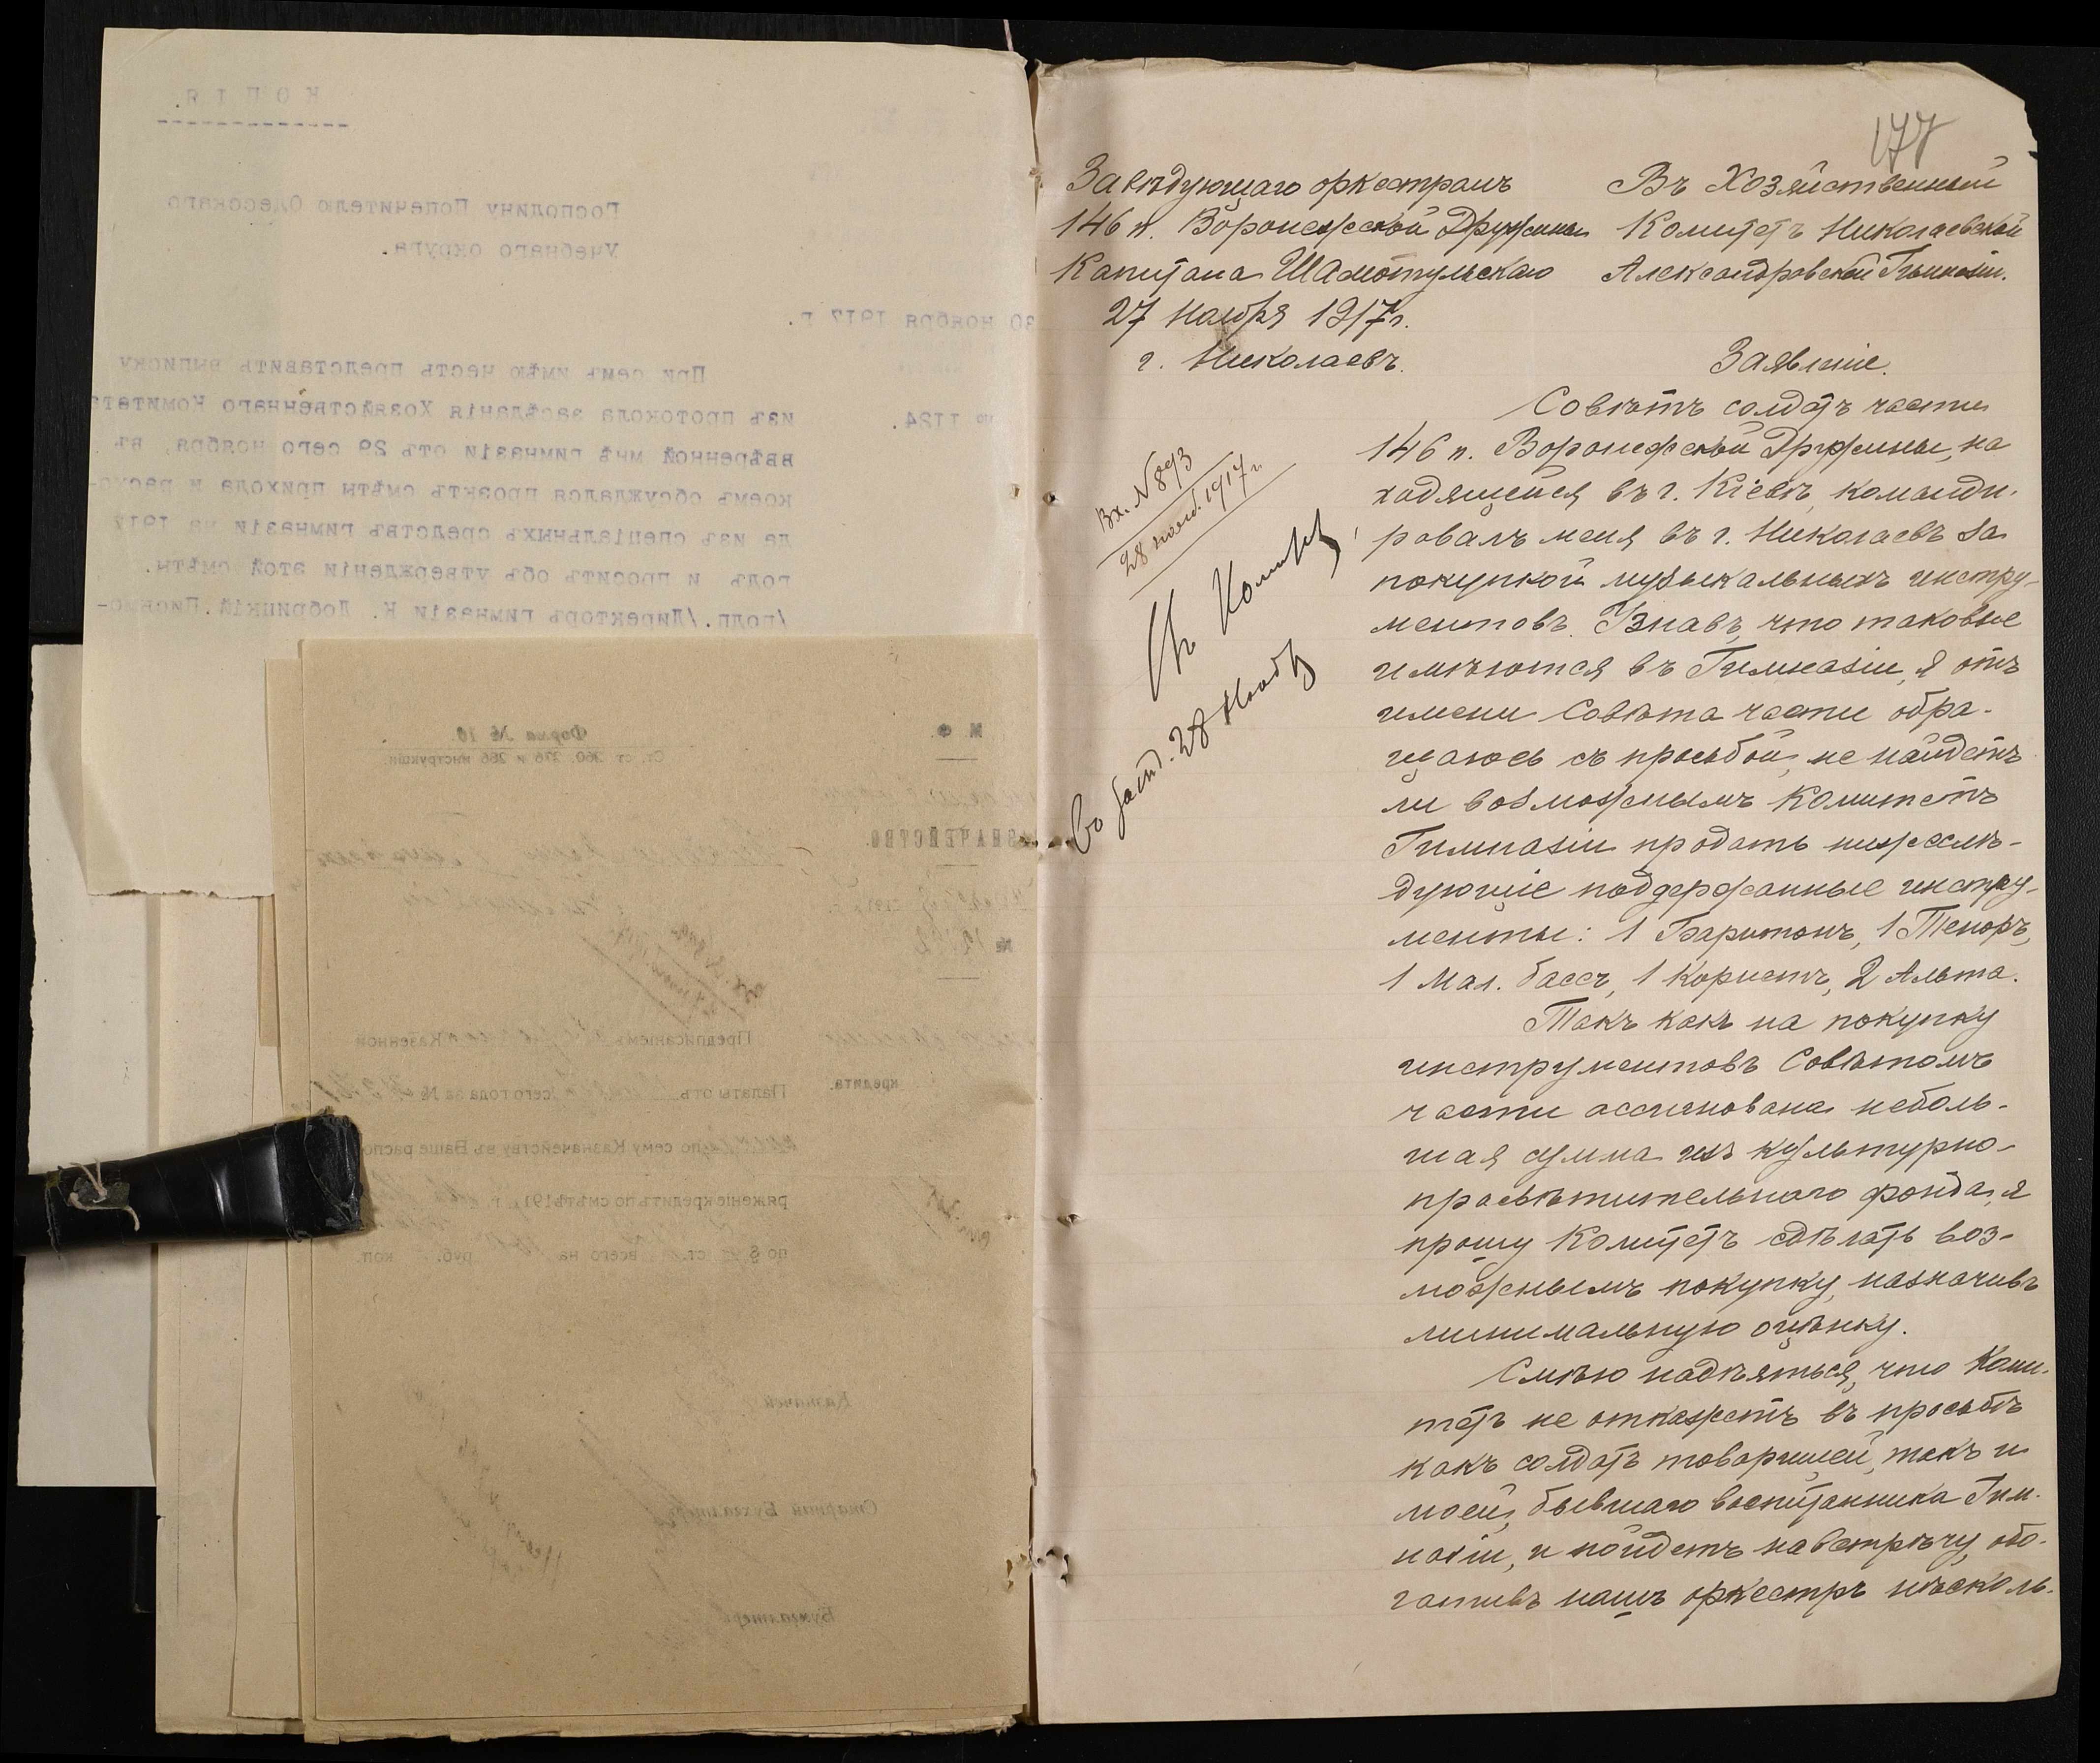 177
Завѣдующаго оркестромъ
146 п. Воронежской Дружины
Капитана Шамотульскаго
27 Ноября 1917 г.
г. Николаевъ.
Въ Хозяйственный
Комитетъ Николаевской
Александровской Гимназіи.
Заявленіе.
Вх. N 893
28 нояб. 1917 г.
Совѣтъ солдатъ части
146 п. Воронежской Дружины, на
ходящейся въ г. Кіевѣ, команди-
ровалъ меня въ г. Николаевъ за
покупкой музыкальныхъ инстру-
ментовъ. Узнавъ, что таковые
имѣются въ Гимназіи, я отъ
имени Совѣта части обра-
щаюсь съ просьбой, не найдетъ
ли возможнымъ Комитетъ
Гимназіи продать нижеслѣ-
дующіе подержанные инстру-
менты: 1 Баритонъ, 1 Теноръ,
1 Мал. басъ, 1 Корнетъ, 2 Альта.
Такъ какъ на покупку
инструментовъ Совѣтомъ
части ассигнована неболь-
шая сумма изъ культурно-
просвѣтительнаго фонда, я
прошу Комитетъ сдѣлать воз-
можнымъ покупку, назначивъ
минимальную оцѣнку.
Смѣю надѣяться, что Коми-
тетъ не откажетъ въ просьбѣ
какъ солдатъ товарищей, такъ и
моей, бывшаго воспитанника Гим-
назіи, и пойдетъ навстрѣчу, обо-
гативъ нашъ оркестръ нѣсколь-
КОПІЯ.
Господину Попечителю Одесскаго
Учебнаго округа.
30 ноября 1917 г.
№ 1124.
При семъ имѣю честь представить выписку
изъ протокола засѣданія Хозяйственнаго Комитета
ввѣренной мнѣ гимназіи отъ 29 сего ноября, въ
коемъ обсуждался проэктъ смѣты прихода и расхо-
да изъ спеціальныхъ средствъ гимназіи на 1917
годъ и проситъ объ утвержденіи этой смѣты.
/подп./Директоръ гимназіи К. Добрицкій. Письмо-
М. Ф.
Форма № 10.
Ст. ст 360, 276 и 286 инструкціи.
КАЗНАЧЕЙСТВО.
кредита.
Предписаніемъ Казенной
Палаты отъ сего года за №
по сему Казначейству въ Ваше распо-
ряженіе кредитъ по смѣтѣ 191 г.
по § ст. всего на руб. коп.
Казначей
Старшій Бухгалтеръ
Бухгалтеръ